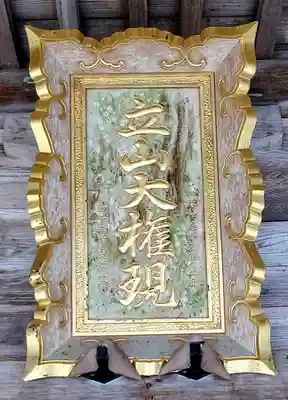 立山大権現